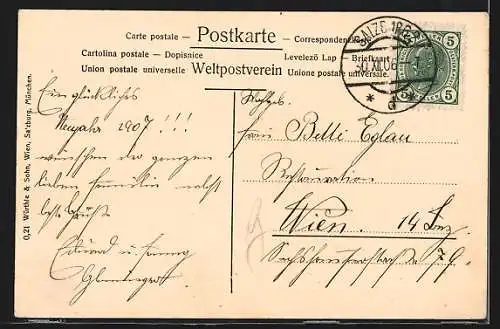 Carte postale — Postkarte — Correspondenz
Cartolina postale — Dopisnice
Levelező Lap — Briefkart
Union postale universelle Weltpostverein Unione postale universale.
SALZBURG
30 XII 06
5 5
0,21 Würthle & Sohn, Wien, Salzburg, München.
Ein glückliches
Neujahr 1907 !!!
wünschen der ganzen
lieben Familie nebst
beste Grüße
Eduard u.
Wohlgeb.
Frau Belli Eglau
Restauration
Wien. 14 Bez
79.